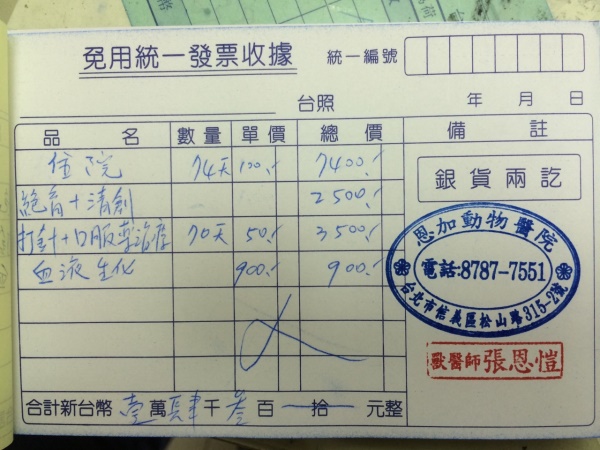 免用統一發票收據 統一編號
台照 年 月 日
品 名 數量 單價 總價 備註
住院 74天 100.- 7400.-
絕育+清創 2500.-
打針+口服藥治療 70天 50.- 3500.-
血液生化 900.- 900.-
合計新台幣 壹 萬 肆 千 叁 百 一 拾 元整
銀貨兩訖
恩加動物醫院
電話:8787-7551
台北市信義區松山路315-2號
獸醫師 張恩愷